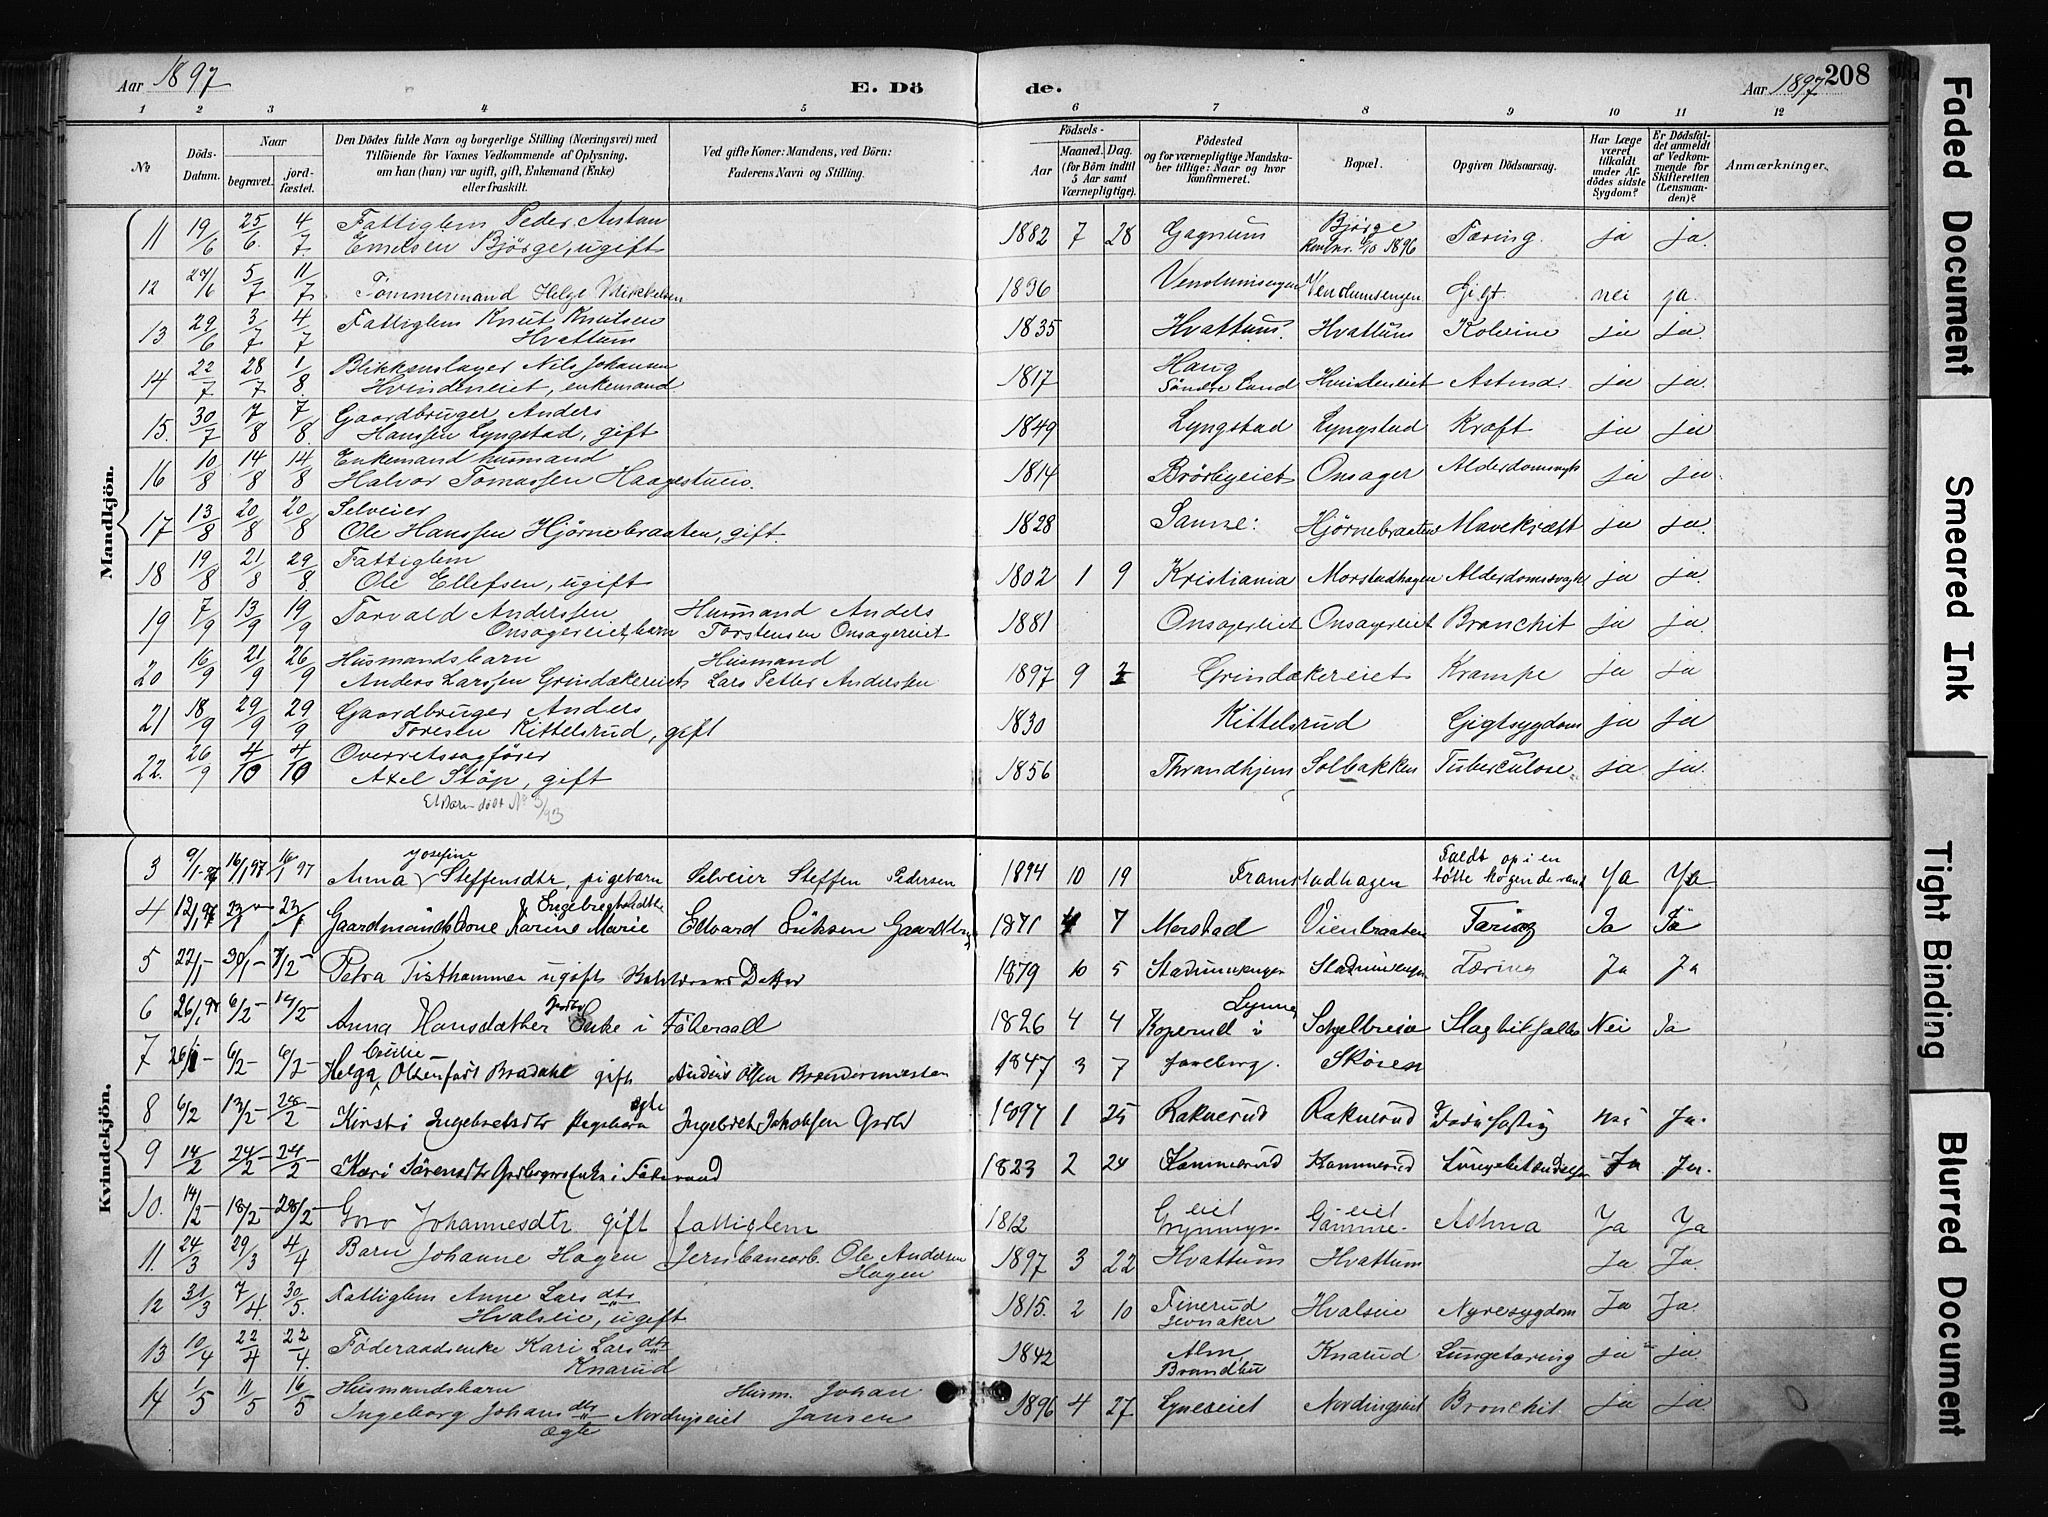 Aar 1897
E. Dö
de.
Aar 1897
208
1 2 3 4 5 6 7 8 9 10 11 12
No
Döds-Datum.
Naar
begravet.
jord-fæstet.
Den Dödes fulde Navn og borgerlige Stilling (Næringsvei) med
Tilföiende for Voxnes Vedkommende af Oplysning,
om han (hun) var ugift, gift, Enkemand (Enke)
eller fraskilt.
Ved gifte Koner: Mandens, ved Börn:
Faderens Navn og Stilling.
Födsels-
Aar
Maaned. Dag.
(for Börn indtil
5 Aar samt
Værnepligtige).
Födested
og for værnepligtige Mandska-
ber tillige: Naar og hvor
konfirmeret.
Bopæl.
Opgiven Dödsaarsag.
Har Læge
været
tilkaldt
under Af-
dödes sidste
Sygdom?
Er Dödsfal-
det anmeldt
af Vedkom-
mende for
Skifteretten
(Lensman-
den)?
Anmærkninger.
Mandkjön.
11 19/6 25/6. 4/7. Fattiglem Peder Anton
Emelsen Bjørge, ugift 1882 7 28 Gagnum Bjørge Tæring. ja ja.
12 27/6 5/7 11/7 Tømmermand Helge Mikkelsen 1836 Vendumsengen Gigt. nei ja.
13 29/6 3/7 4/7 Fattiglem Knut Knutsen
Hvattum 1835 Hvattum Hvattum Kolerine ja ja.
14 22/7 28/7 1/8. Blikkenslager Nils Johansen
Hvindeneiet, enkemand. 1817 Haug
Søndre Land Hvindeneiet Astma. ja ja.
15. 30/7 7/8 7/8. Gaardbruger Anders
Hanssen Lyngstad, gift 1849 Lyngstad Lyngstad Kræft ja ja
16 10/8 14/8 14/8 Enkemand husmand
Halvor Tomassen Haagestuen. 1814 Brørbyeiet Onsager ja ja.
17 13/8 20/8 20/8 Selveier
Ole Hanssen Hjørnebraaten, gift. 1828 Sanne: Hjørnebraaten Mavekræft ja ja.
18 19/8 21/8 29/8. Fattiglem
Ole Ellefsen, ugift 1802 1 9 Kristiania Morstadhagen ja ja.
19 7/9 13/9 19/9 Torvald Anderssen
Onsagereiet, barn Husmand Anders
Torstensen Onsagereiet 1881 Onsagereiet Onsagereiet Bronchit ja ja.
20 16/9 21/9 26/9 Husmandsbarn
Anders Larssen Grindakereiet Husmand
Lars Petter Anderssen 1897 9 2 Grindakereiet Krampe ja ja
21 18/9 29/9 29/9 Gaardbruger Anders
Toresen Kittelsrud, gift 1830 Kittelsrud Gigtsygdom ja ja
22. 26/9 4/10 4/10 Overretssagfører
Axel Støp, gift 1856 Thrandhjem Solbakken Tuberkulose ja ja.
Kvindekjön.
3 9/1-97 16/1 97 16/1 97 Josefine
Anna Steffensdtr, pigebarn Selveier Steffen Pedersen 1894 10 19 Framstadhagen Faldt op i en
bøtte kogende vand Ja Ja
4 12/1 97 23/1 - 23/1 Engebregtsdtr
Gaardmandskone Karine Marie Edvard Eriksen 1871 4 7 Morstad Vienbraaten Tæring Ja Ja
5 22/1 - 30/1 - 7/2 - Petra Tisthammer ugift Datter 1879 10 5 Tæring Ja Ja
6 26/1 97 6/2 - 14/2 - Anna Hansdatter Enke i Føderaad 1826 4 4 Koperud i Lynne Nei Ja
7 26/1 - 6/2 - 6/2 - Cecilie
Helga Olsen født Bradahl gift Anders Olsen 1847 3 7 Skøien
8 6/2 13/2 - 28/2 - Kirsti Ingebretsdtr Pigebarn ægte Ingebret Jakobsen 1897 1 25 Raknerud Raknerud nei Ja.
9 14/2 24/2 - 24/2 - Kari Sørensdtr Enke i Føderaad 1823 2 24 Kammerud Kammerud Lungebetændelse Ja Ja.
10. 14/2 - 18/2 - 28/2 - Goro Johannesdtr gift fattiglem 1812 Astma Ja Ja
11. 24/3 29/3 4/4 Barn Johanne Hagen Jernbanearb. Ole Andersen
Hagen 1897 3 22 Hvattum Hvattum Ja Ja.
12 31/3 7/4. 30/5. Fattiglem Anne Larsdtr
Hvalseie, ugift 1815. 2 10 Finerud
Jevnaker Hvalseie Nyresygdom Ja Ja.
13 10/4 22/4 22/4. Føderaadsenke Kari Larsdtr
Knarud 1842 Alm
Brandbu Knarud Lungetæring ja ja.
14 1/5 11/5 16/5 Husmandsbarn
Ingeborg Johansdtr Nordingseiet
ægte Husm. Johan
Jansen 1896 4 27 Lyneseiet Nordingseiet Bronchit ja ja.
Faded Document
Smeared Ink
Tight Binding
Blurred Document